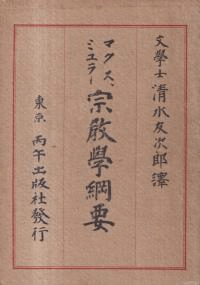 文學士 清水友次郎譯
マクス、ミュラー
宗敎學綱要
東京 丙午出版社發行